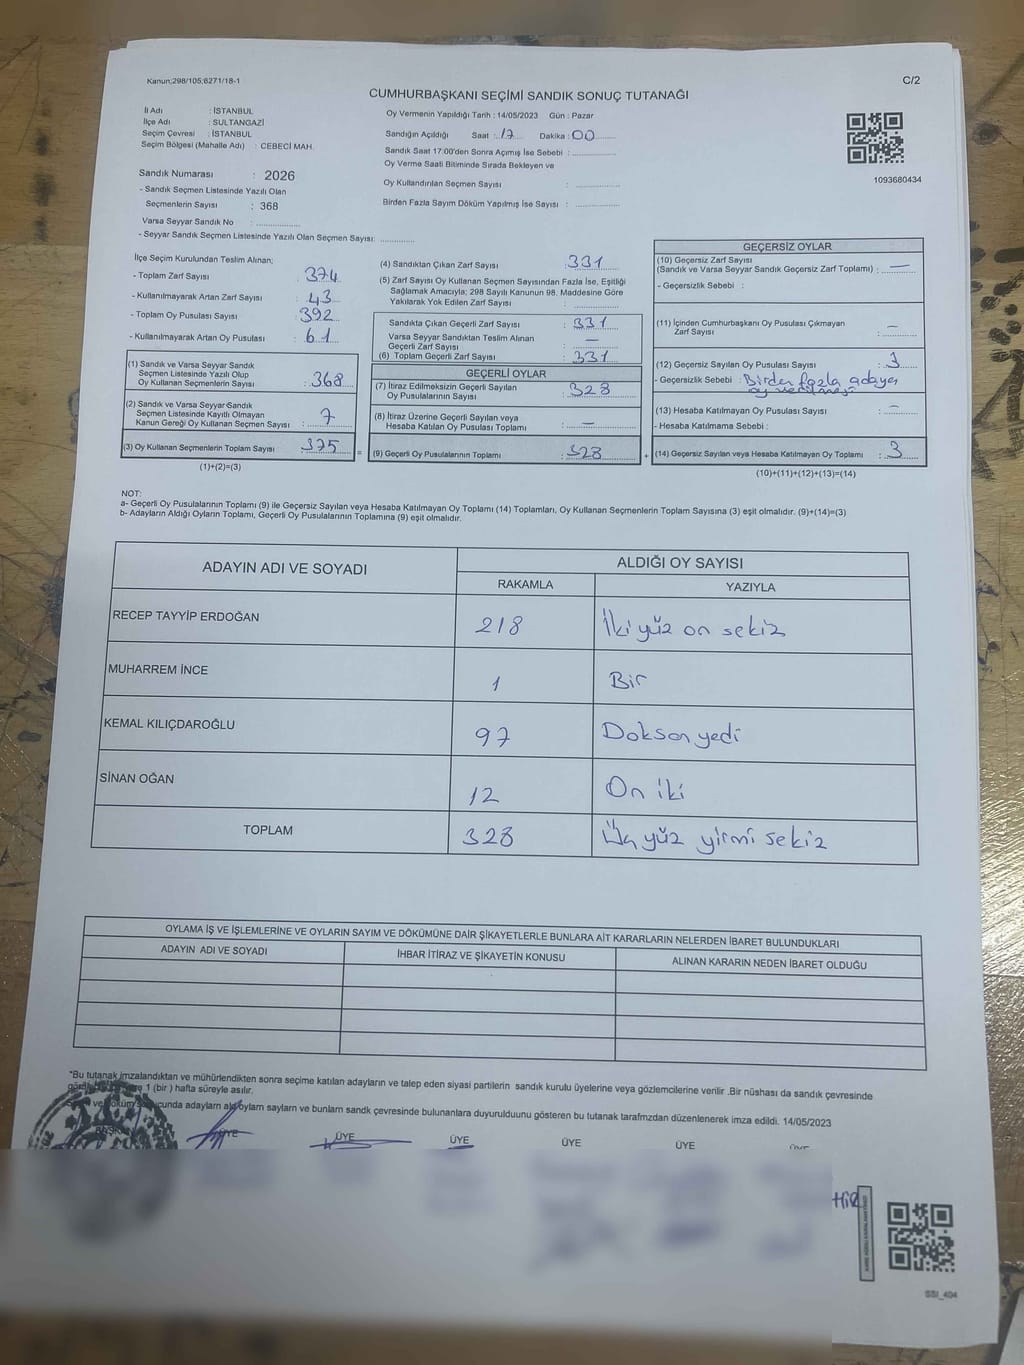 Kanun;298/105,6271/18-1
C/2
CUMHURBAŞKANI SEÇİMİ SANDIK SONUÇ TUTANAĞI
İl Adı : İSTANBUL
İlçe Adı : SULTANGAZİ
Seçim Çevresi : İSTANBUL
Seçim Bölgesi (Mahalle Adı) : CEBECİ MAH.
Sandık Numarası : 2026
- Sandık Seçmen Listesinde Yazılı Olan
Seçmenlerin Sayısı : 368
Varsa Seyyar Sandık No : ..................
- Seyyar Sandık Seçmen Listesinde Yazılı Olan Seçmen Sayısı: ..............
Oy Vermenin Yapıldığı Tarih : 14/05/2023 Gün : Pazar
Sandığın Açıldığı Saat : 17 Dakika : 00
Sandık Saat 17:00'den Sonra Açımış İse Sebebi : ..................
Oy Verme Saati Bitiminde Sırada Bekleyen ve
Oy Kullandırılan Seçmen Sayısı : ..................
Birden Fazla Sayım Döküm Yapılmış İse Sayısı : ..................
1093680434
İlçe Seçim Kurulundan Teslim Alınan;
- Toplam Zarf Sayısı : 374
- Kullanılmayarak Artan Zarf Sayısı : 43
- Toplam Oy Pusulası Sayısı : 392
- Kullanılmayarak Artan Oy Pusulası : 61
(1) Sandık ve Varsa Seyyar Sandık
Seçmen Listesinde Yazılı Olup
Oy Kullanan Seçmenlerin Sayısı : 368
(2) Sandık ve Varsa Seyyar Sandık
Seçmen Listesinde Kayıtlı Olmayan
Kanun Gereği Oy Kullanan Seçmen Sayısı : 7
(3) Oy Kullanan Seçmenlerin Toplam Sayısı : 375 =
(1)+(2)=(3)
(4) Sandıktan Çıkan Zarf Sayısı : 331
(5) Zarf Sayısı Oy Kullanan Seçmen Sayısından Fazla İse, Eşitliği
Sağlamak Amacıyla; 298 Sayılı Kanunun 98. Maddesine Göre
Yakılarak Yok Edilen Zarf Sayısı : ..................
Sandıkta Çıkan Geçerli Zarf Sayısı : 331
Varsa Seyyar Sandıktan Teslim Alınan
Geçerli Zarf Sayısı : —
(6) Toplam Geçerli Zarf Sayısı : 331
GEÇERLİ OYLAR
(7) İtiraz Edilmeksizin Geçerli Sayılan
Oy Pusulalarının Sayısı : 328
(8) İtiraz Üzerine Geçerli Sayılan veya
Hesaba Katılan Oy Pusulası Toplamı : —
(9) Geçerli Oy Pusulalarının Toplamı : 328 +
GEÇERSİZ OYLAR
(10) Geçersiz Zarf Sayısı
(Sandık ve Varsa Seyyar Sandık Geçersiz Zarf Toplamı) : —
- Geçersizlik Sebebi :
(11) İçinden Cumhurbaşkanı Oy Pusulası Çıkmayan
Zarf Sayısı : —
(12) Geçersiz Sayılan Oy Pusulası Sayısı : 3
- Geçersizlik Sebebi : Birden fazla adaya
oy verilmesi
(13) Hesaba Katılmayan Oy Pusulası Sayısı : —
- Hesaba Katılmama Sebebi :
(14) Geçersiz Sayılan veya Hesaba Katılmayan Oy Toplamı : 3
(10)+(11)+(12)+(13)=(14)
NOT:
a- Geçerli Oy Pusulalarının Toplamı (9) ile Geçersiz Sayılan veya Hesaba Katılmayan Oy Toplamı (14) Toplamları, Oy Kullanan Seçmenlerin Toplam Sayısına (3) eşit olmalıdır. (9)+(14)=(3)
b- Adayların Aldığı Oyların Toplamı, Geçerli Oy Pusulalarının Toplamına (9) eşit olmalıdır.
ADAYIN ADI VE SOYADI ALDIĞI OY SAYISI
RAKAMLA YAZIYLA
RECEP TAYYİP ERDOĞAN 218 İki yüz on sekiz
MUHARREM İNCE 1 Bir
KEMAL KILIÇDAROĞLU 97 Doksan yedi
SİNAN OĞAN 12 On iki
TOPLAM 328 Üç yüz yirmi sekiz
OYLAMA İŞ VE İŞLEMLERİNE VE OYLARIN SAYIM VE DÖKÜMÜNE DAİR ŞİKAYETLERLE BUNLARA AİT KARARLARIN NELERDEN İBARET BULUNDUKLARI
ADAYIN ADI VE SOYADI İHBAR İTİRAZ VE ŞİKAYETİN KONUSU ALINAN KARARIN NEDEN İBARET OLDUĞU
*Bu tutanak imzalandıktan ve mühürlendikten sonra seçime katılan adayların ve talep eden siyasi partilerin sandık kurulu üyelerine veya gözlemcilerine verilir .Bir nüshası da sandık çevresinde
1 (bir ) hafta süreyle asılır.
adayların oyların sayları ve bunların sandk çevresinde bulunanlara duyurulduunu gösteren bu tutanak tarafmzdan düzenlenerek imza edildi. 14/05/2023
ÜYE ÜYE ÜYE ÜYE ÜYE
SSI_404